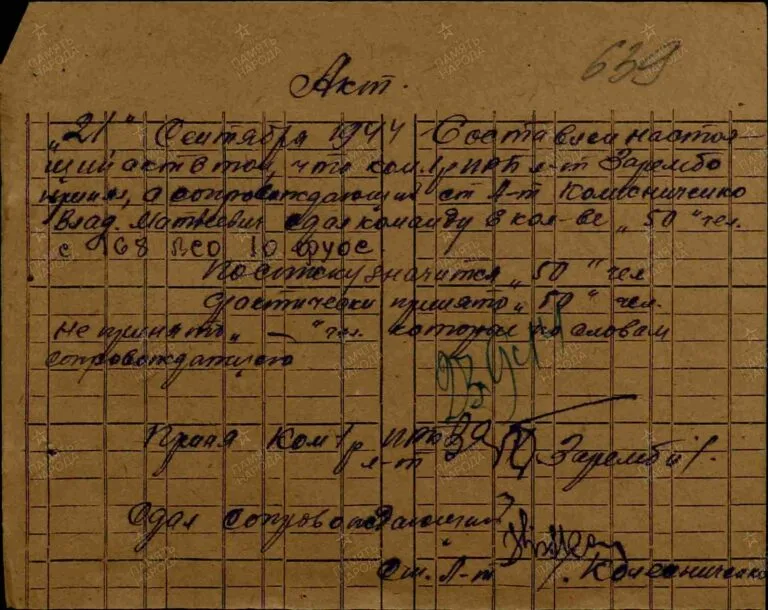 639
Акт.
„21“ Сентября 1944 Составлен настоя-
щий акт в том, что ком. 1р ППП л-т Зарембо
принял, а сопровождающий ст л-т Колесниченко
Влад. Матвеевич сдал команду в кол-ве „50“ чел.
с 168 ВСО 10 фуос
По списку значится „50“ чел
фактически принято „50“ чел.
Не принято „—“ чел. которые по словам
сопровождающего
Принял Ком 1р
л-т Зарембо
Сдал сопровождающий
Ст. Л-т Колесниченко